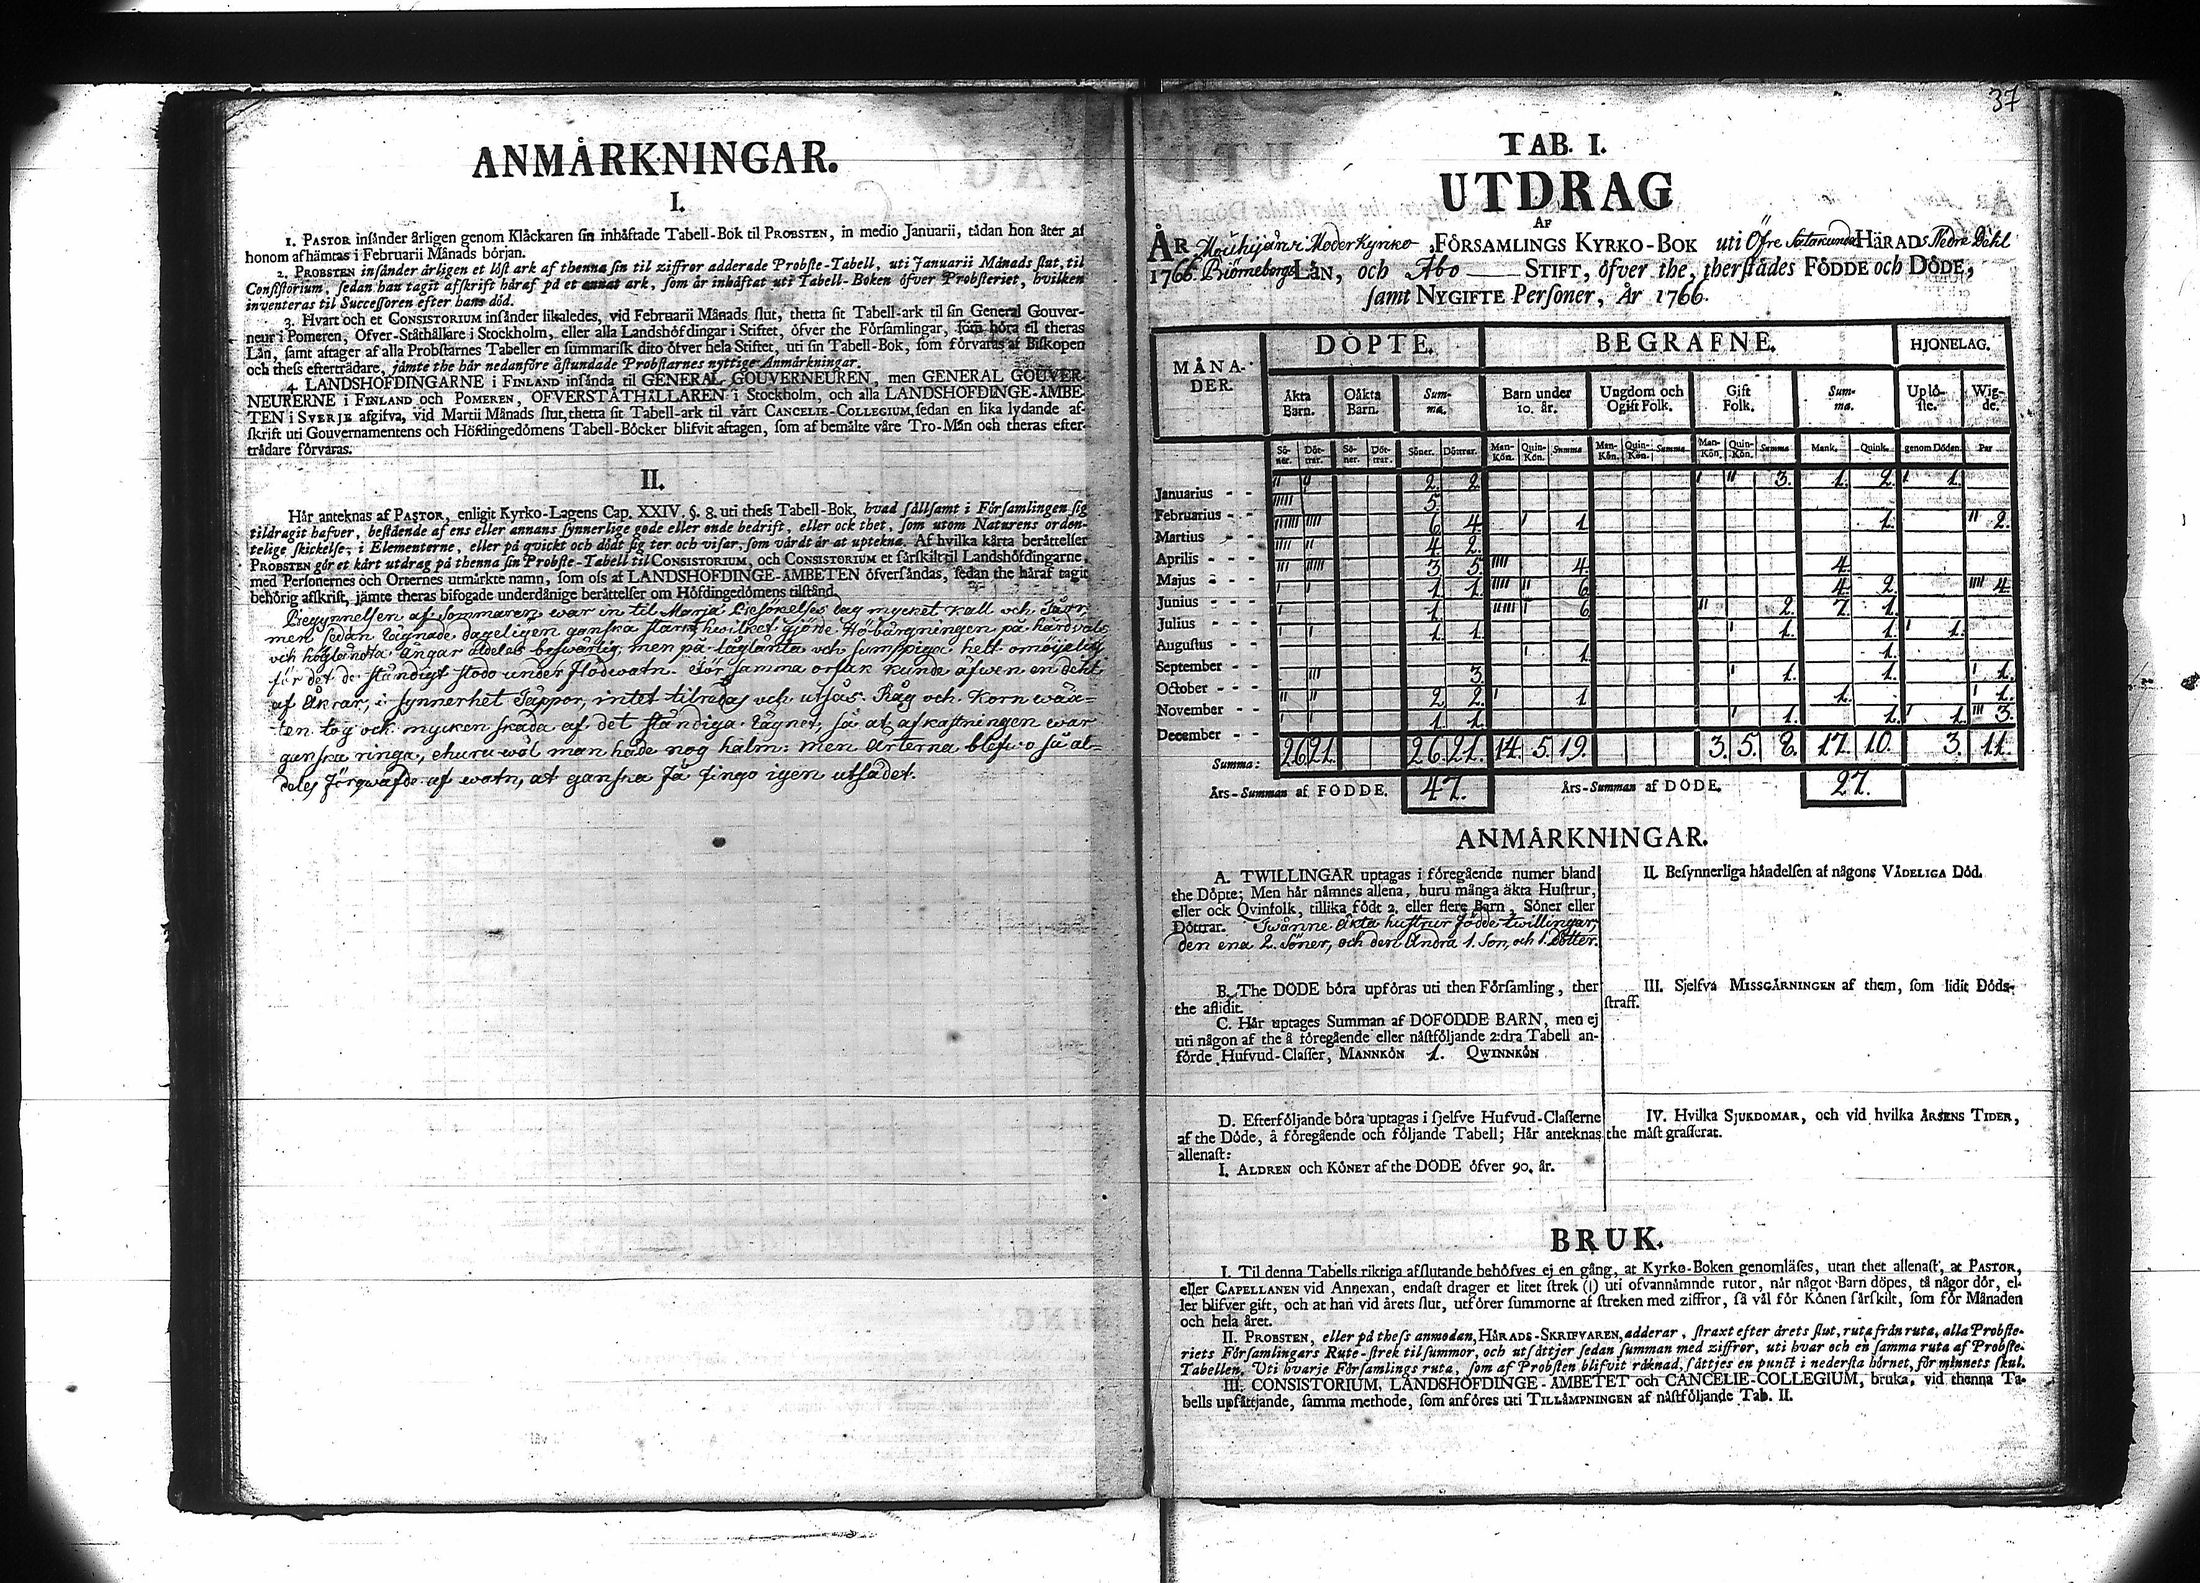 ANMÅRKNINGAR.
I.
1. PASTOR insånder årligen genom Klåckaren sin inhåftade Tabell-Bok til PROBSTEN, in medio Januarii, tådan hon åter af
honom afhåmtas i Februarii Månads början.
2. PROBSTEN insånder årligen et löst ark af thenna sin til ziffror adderade Probste-Tabell, uti Januarii Månads slut, til
Consistorium, sedan han tagit afskrift håraf på et annat ark, som år inhåftat uti Tabell-Boken öfver Probsteriet, hvilken
inventeras til Successoren efter hans död.
3. Hvart och et CONSISTORIUM insånder likaledes, vid Februarii Månads slut, thetta sit Tabell-ark til sin General Gouver-
neur i Pomeren, Öfver-Ståthållare i Stockholm, eller alla Landshöfdingar i Stiftet, öfver the Församlingar, som höra til theras
Lån, samt aftager af alla Probstarnes Tabeller en summarisk dito öfver hela Stiftet, uti sin Tabell-Bok, som förvaras af Biskopen
och thess efterträdare, jåmte the hår nedanföre åstundade Probstarnes nyttige Anmårkningar.
4. LANDSHÖFDINGARNE i FINLAND insånda til GENERAL GOUVERNEUREN, men GENERAL GOUVER-
NEURERNE i FINLAND och POMEREN, ÖFVERSTÅTHÅLLAREN i Stockholm, och alla LANDSHÖFDINGE-ÅMBE-
TEN i SVERJE afgifva, vid Martii Månads slut, thetta sit Tabell-ark til vårt CANCELIE-COLLEGIUM, sedan en lika lydande af-
skrift uti Gouvernamentens och Höfdingedömens Tabell-Böcker blifvit aftagen, som af bemålte våre Tro-Mån och theras efter-
trådare förvaras.
II.
Hår anteknas af PASTOR, enligit Kyrko-Lagens Cap. XXIV. §. 8. uti thess Tabell-Bok, hvad sållsamt i Församlingen sig
tildragit hafver, bestående af ens eller annans synnerlige gode eller onde bedrift, eller ock thet, som utom Naturens orden-
telige skickelse, i Elementerne, eller på qvickt och dödt sig ter och visar, som vårdt år at uptekna. Af hvilka kårta beråttelser
PROBSTEN gör et kårt utdrag på thenna sin Probste-Tabell til CONSISTORIUM, och CONSISTORIUM et sårskilt til Landshöfdingarne,
med Personernes och Orternes utmårkte namn, som oss af LANDSHÖFDINGE-ÅMBETEN öfversåndas, sedan the håraf tagit
behörig afskrift, jåmte theras bifogade underdånige beråttelser om Höfdingedömens tilstånd.
Begynnelsen af Sommaren war in til Marjæ Besökelses dag mycket kall och Tårr
men sedan rågnade dageligen ganska starkt, hwilket gjorde Höbårgningen på hårdvals
och höglåndta ångar aldeles beswårlig, men på låglånta och sumpiga helt omöjelig
för det de ståndigt stodo under Flödwatn. För samma orsak kunde åfwen en dehl
af Åkrar, i synnerhet Tåppor, intet tilredas och utsås. Råg och Korn wåx-
ten tog ock mycken skada af det ståndiga rågnet, så at afkastningen war
ganska ringa, ehuru wål man hade nog halm: men Årterna blefwo så al-
deles förqwafde af watn, at ganska få fingo igen utsådet.
37
TAB. I.
UTDRAG
AF
ÅR Mouhijärvi Moderkyrko FÖRSAMLINGS KYRKO-BOK uti Öfre Satacunda HÄRADs Nedre Dehl
1766. Biörneborgs LÅN, och Åbo STIFT, öfver the, therstådes FÖDDE och DÖDE,
samt NYGIFTE Personer, År 1766.
MÅNA-DER. DÖPTE. BEGRAFNE. HJONELAG.
Åkta Barn. Oåkta Barn. Sum-ma. Barn under 10. år. Ungdom och Ogift Folk. Gift Folk. Sum-ma. Uplö-ste. Wig-de.
Sö-ner. Döt-trar. Sö-ner. Döt-trar. Söner. Döttrar. Man-Kön. Quin-Kön. Summa Man-Kön. Quin-Kön. Summa Man-Kön. Quin-Kön. Summa Mank. Quink. genom Döden. Par
Januarius - - 2. 2. 3. 1. 2. 1.
Februarius - - 5.
Martius - - 6. 4. 1. 1. 2.
Aprilis - - 4. 2.
Majus - - 3. 5. 4. 4.
Junius - - 1. 1. 6. 4. 2. 4.
Julius - - 1. 6. 2. 7. 1.
Augustus - - 1. 1. 1. 1. 1.
September - - 1. 1.
October - - 3. 1. 1. 1.
November - - 2. 2. 1. 1. 1.
December - - 1. 1. 1. 1. 1. 3.
Summa: 26. 21. 26. 21. 14. 5. 19. 3. 5. 8. 17. 10. 3. 11.
Års-Summan af FÖDDE. 47. Års-Summan af DÖDE. 27.
ANMÅRKNINGAR.
A. TWILLINGAR uptagas i föregående numer bland
the Döpte; Men hår nåmnes allena, huru många åkta Hustrur,
eller ock Qvinfolk, tillika födt 2. eller flere Barn, Söner eller
Döttrar. Twånne åkta hustrur födde twillingar,
den ena 2. Söner, och den Andra 1. Son, och 1. Dotter.
B. The DÖDE böra upföras uti then Församling, ther
the aflidit.
C. Hår uptages Summan af DÖFÖDDE BARN, men ej
uti någon af the å föregående eller nåstföljande 2:dra Tabell an-
förde Hufvud-Classer, MANNKÖN 1. QWINNKÖN
D. Efterföljande böra uptagas i sjelfve Hufvud-Classerne
af the Döde, å föregående och följande Tabell; Hår anteknas
allenast:
I. ÅLDREN och KÖNET af the DÖDE öfver 90. år.
II. Besynnerliga håndelsen af någons VÅDELIGA Död.
III. Sjelfva MISSGÅRNINGEN af them, som lidit Döds-
straff.
IV. Hvilka SJUKDOMAR, och vid hvilka ÅRSENS TIDER,
the måst grasserat.
BRUK.
I. Til denna Tabells riktiga afslutande behöfves ej en gång, at Kyrko-Boken genomlåses, utan thet allenast, at PASTOR,
eller CAPELLANEN vid Annexan, endast drager et litet strek (ı) uti ofvannåmnde rutor, når något Barn döpes, tå någor dör, el-
ler blifver gift, och at han vid årets slut, utförer summorne af streken med ziffror, så vål för Könen sårskilt, som för Månaden
och hela året.
II. PROBSTEN, eller på thess anmodan, HÅRADS-SKRIFVAREN, adderar, straxt efter årets slut, ruta från ruta, alla Probste-
riets Församlingars Rute-strek til summor, och utsåttjer sedan summan med ziffror, uti hvar och en samma ruta af Probste-
Tabellen. Uti hvarje Församlings ruta, som af Probsten blifvit råknad, såttjes en punct i nedersta hörnet, för minnets skul.
III. CONSISTORIUM, LANDSHÖFDINGE-ÅMBETET och CANCELIE-COLLEGIUM, bruka, vid thenna Ta-
bells upsåttjande, samma methode, som anföres uti TILLÅMPNINGEN af nåstföljande Tab. II.